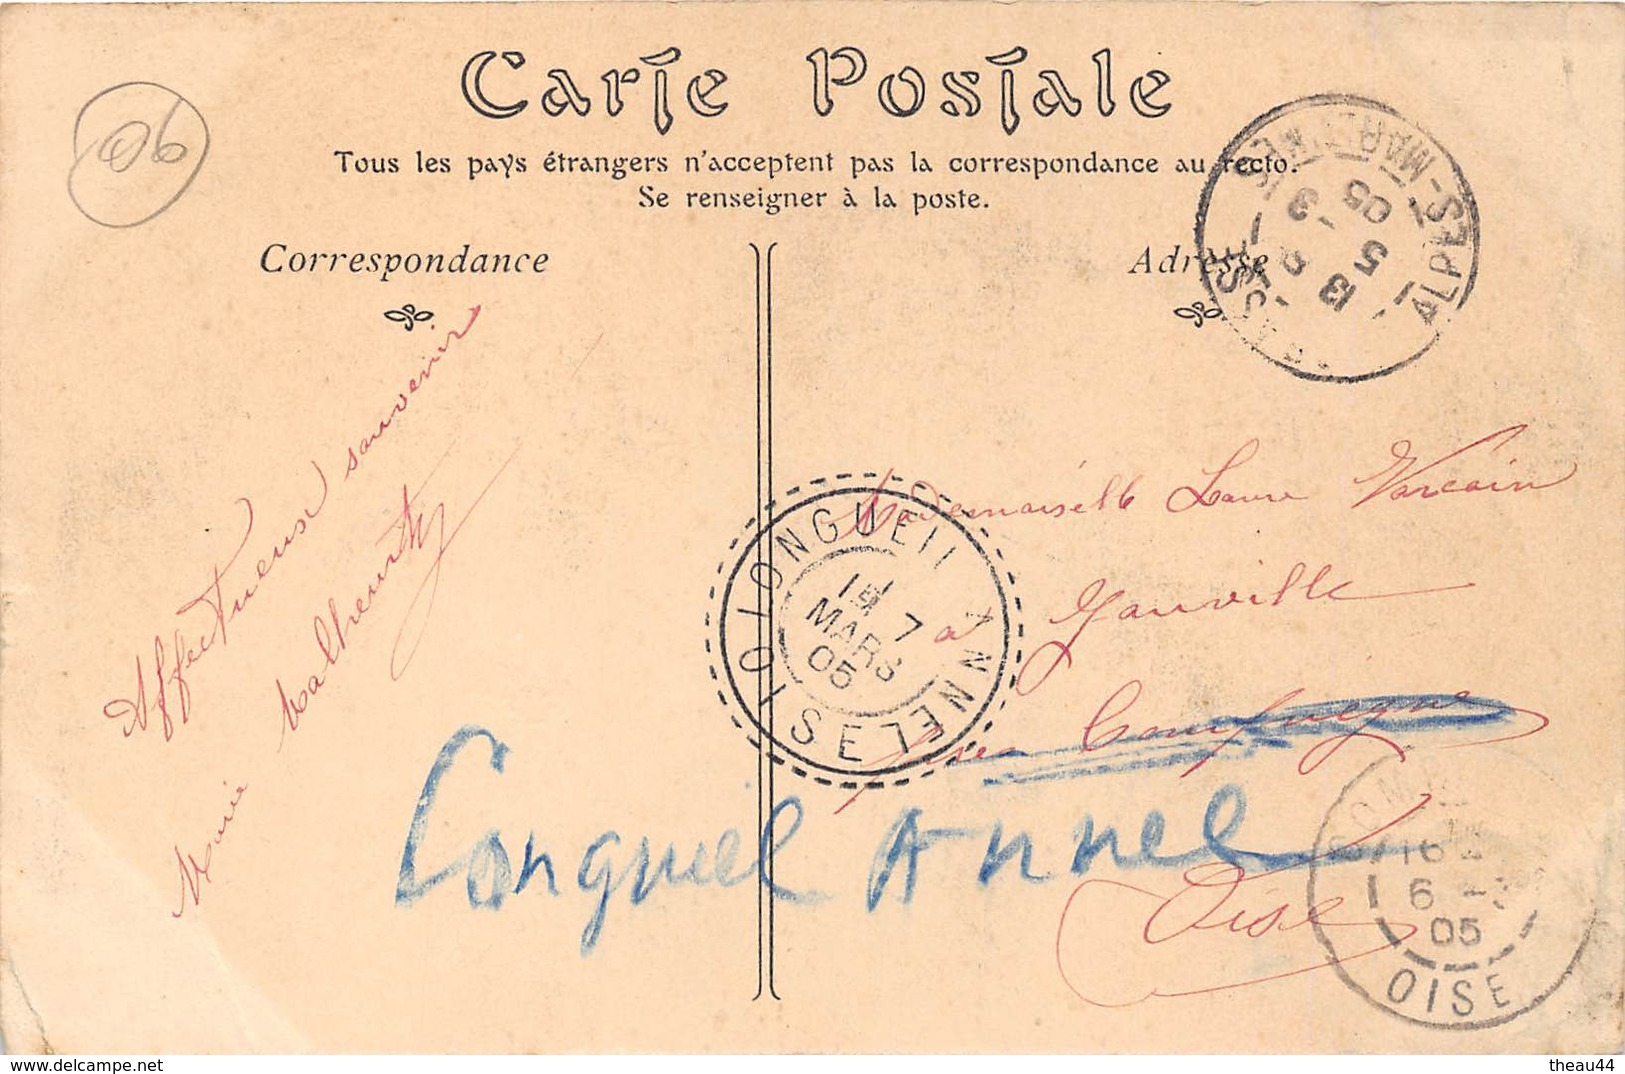 Carte Postale
06
Tous les pays étrangers n'acceptent pas la correspondance au recto.
Se renseigner à la poste.
Correspondance
Adresse
GRASSE
ALPES-MARITIMES
5 -3
05
Affectueux souvenir
Marie Malherbe
Mademoiselle Laure Varcain
à Janville
Compiègne
Oise
Longueil Annel
LONGUEIL ANNEL
OISE
7
MARS
05
16
6 -3
05
OISE
www.delcampe.net
theau44